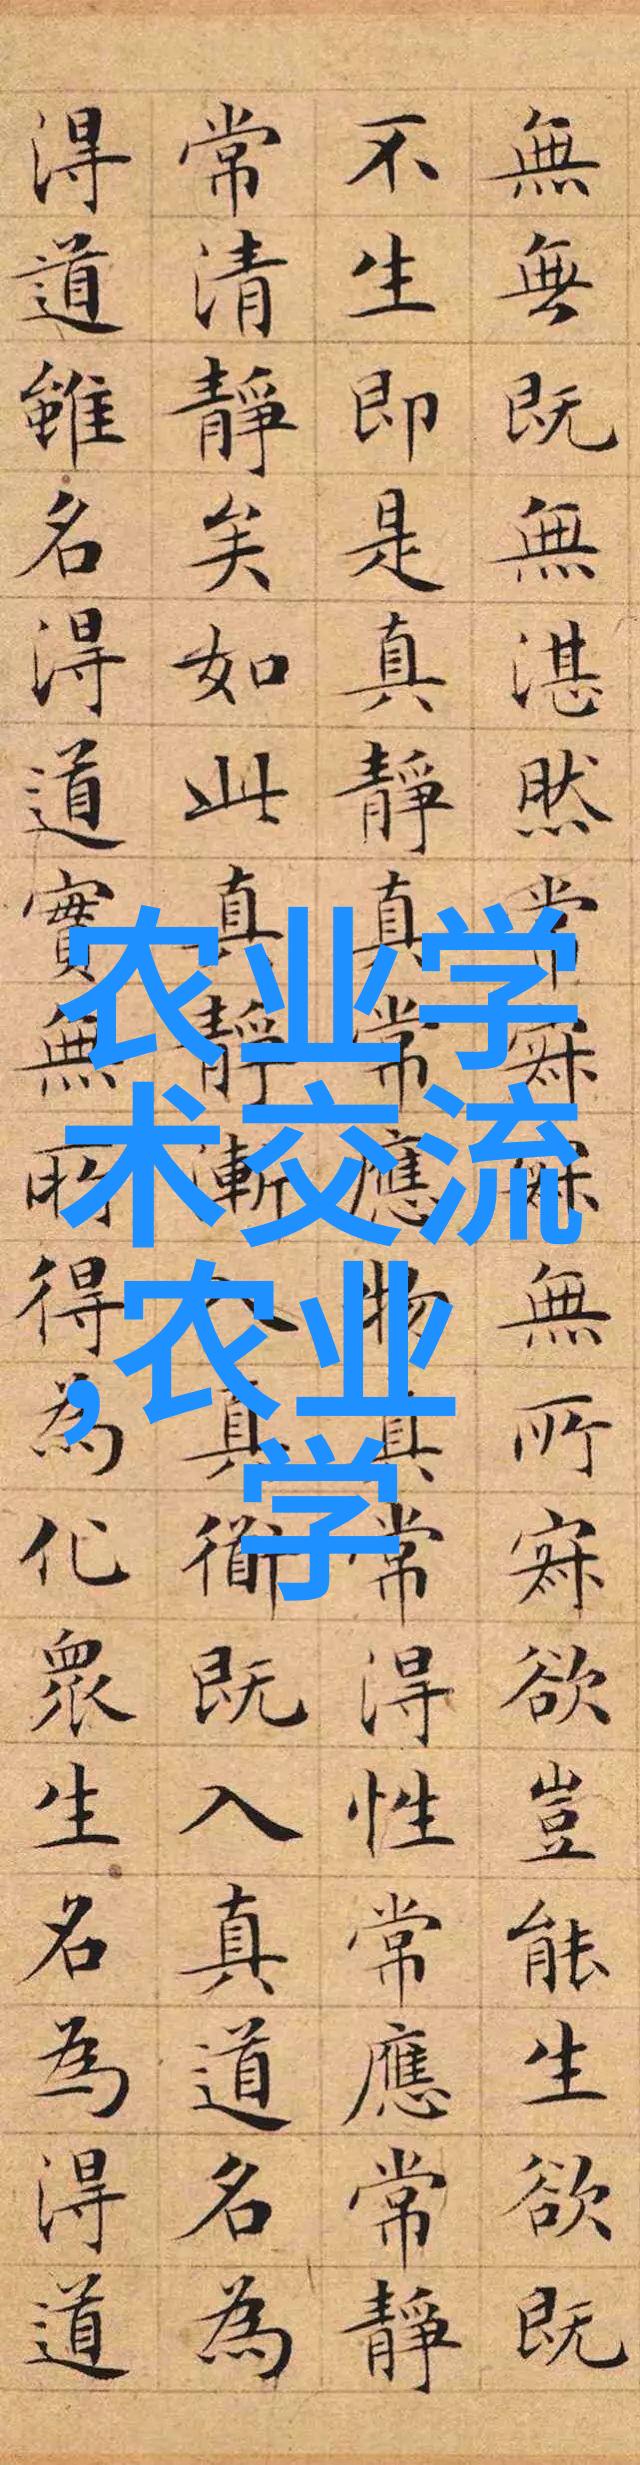 無無既無湛然常寂寂無所寂欲豈能生欲既
不生即是真靜真常應物真常得性常應常靜
常清靜矣如此真靜漸入真衜既入真道名為
得道雖名得道實無所得為化眾生名為得道
农业学
术交流
,农业
学